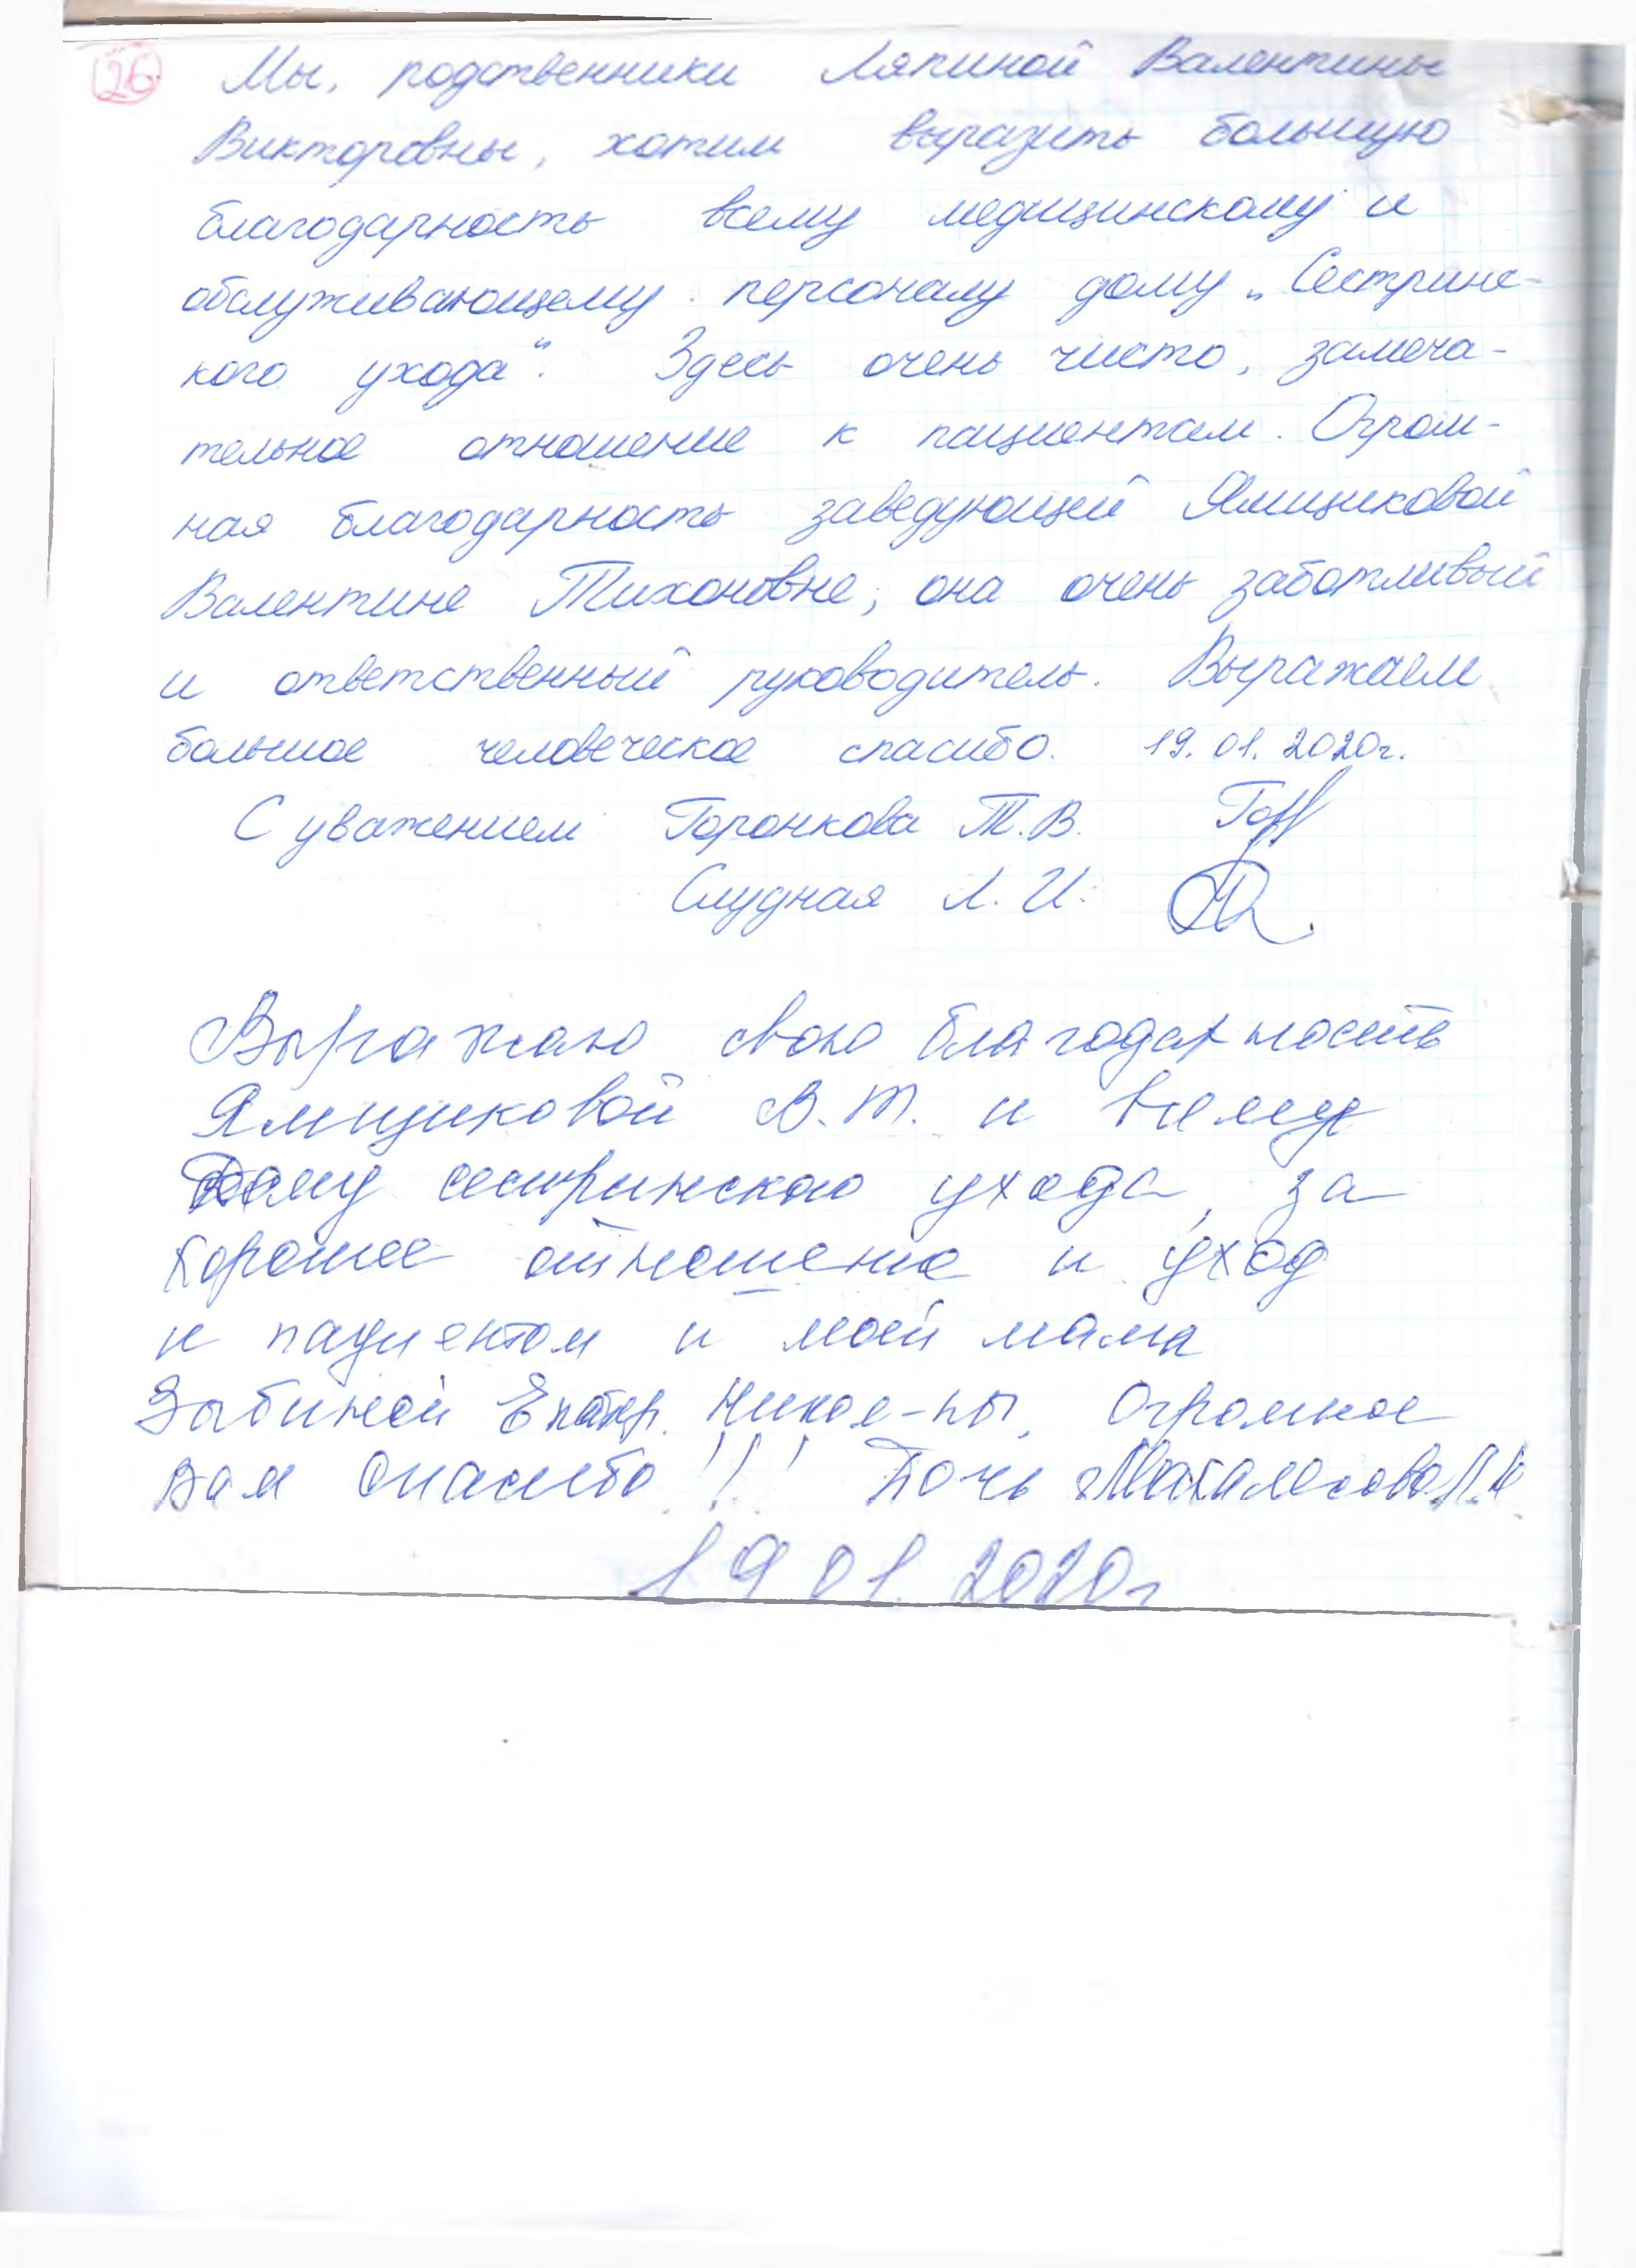 26
Мы, родственники Ляпиной Валентины
Викторовны, хотим выразить большую
благодарность всему медицинскому и
обслуживающему персоналу дому „Сестринс-
кого ухода“. Здесь очень чисто, замеча-
тельное отношение к пациентам. Огром-
ная благодарность заведующей Ямщиковой
Валентине Тихоновне, она очень заботливый
и ответственный руководитель. Выражаем
большое человеческое спасибо. 19.01.2020г.
С уважением Горонкова Т.В.
Слудная Л.И.
Выражаю свою благодарность
Ямщиковой В.Т. и всему
Дому сестринского ухода, за
хорошее отношение и уход
к пациентом и моей мама
Зыбиной Екатер. Никол-ны. Огромное
Вам спасибо!!! Дочь
19 01. 2020г